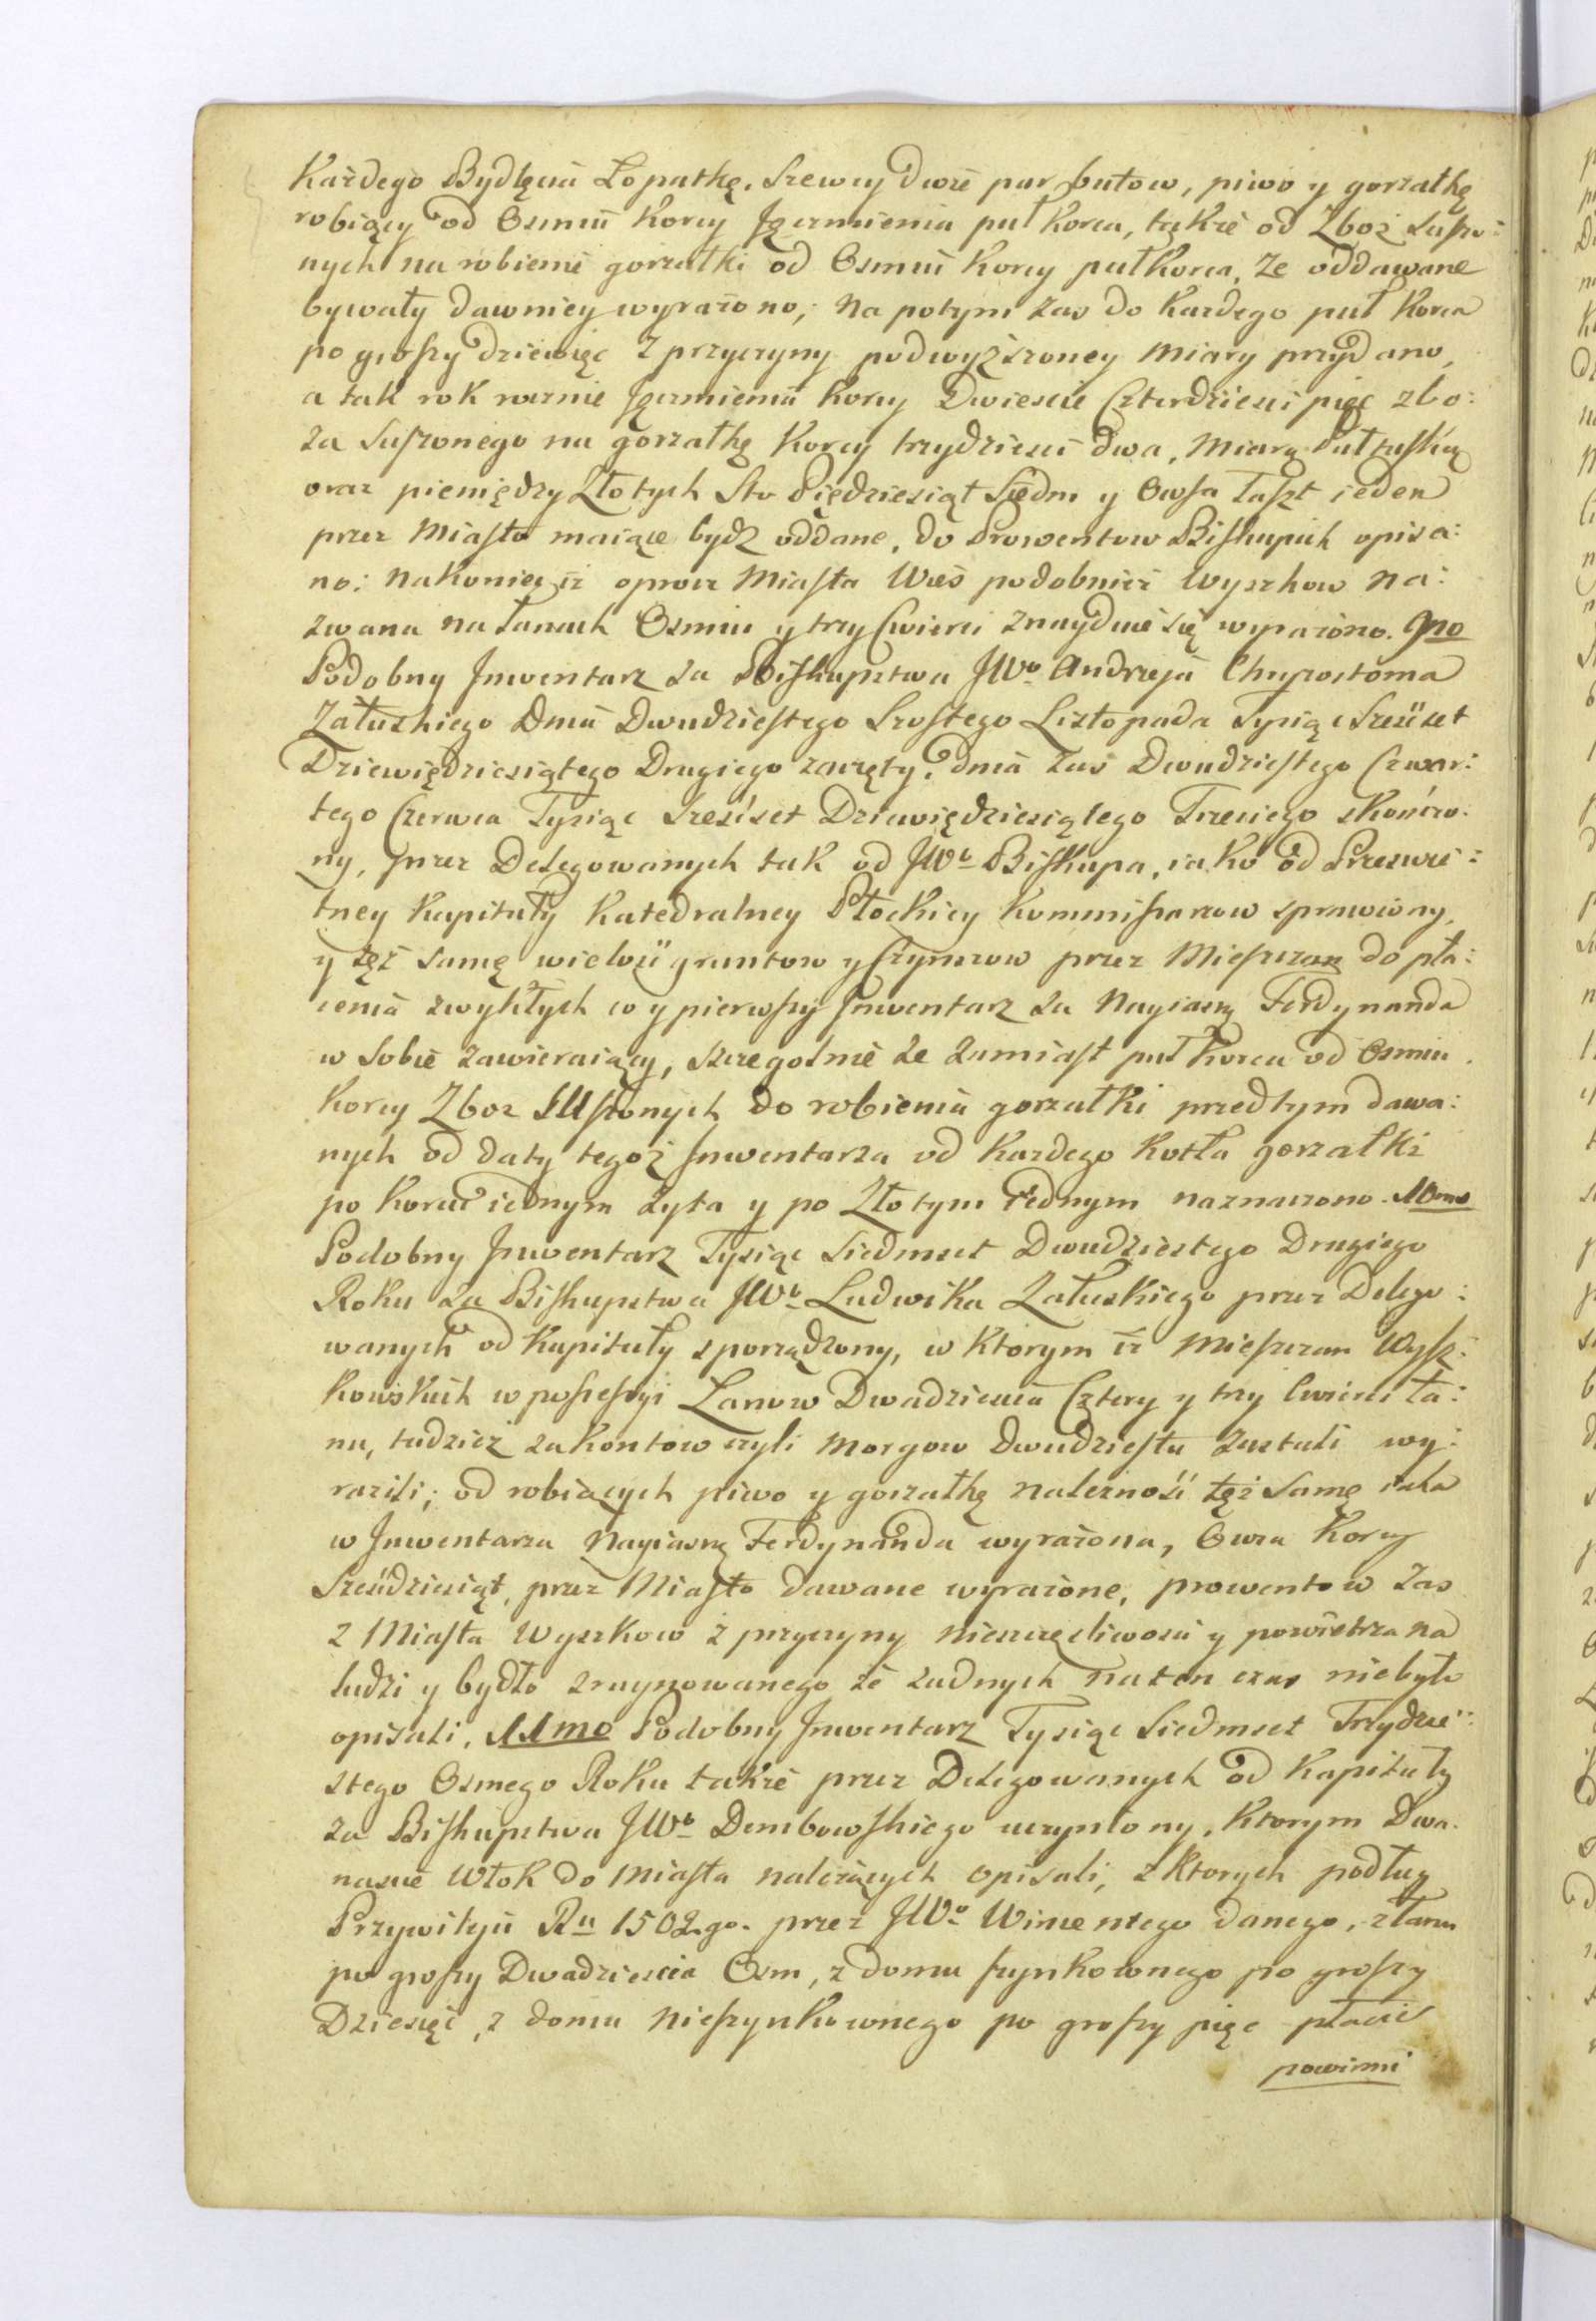 Każdego Bydlęcia Łopatkę, Szewcy dwie par butow, piwo y gorzałkę
robiący od Osmiu Korcy Jęczmienia puł Korca, także od Zboż suszo:
nych na robienie gorzałki od Osmiu Korcy puł Korca, że oddawane
bywały dawniey wyrażono; na potym zas do każdego puł Korca
po groszy dziewięc z przyczyny podwyższoney miary przydano,
a tak rok rocznie Jęczmienia Korcy Dwiescie Czterdziesci pięc zbo:
ża suszonego na gorzałkę Korcy trzydziesci dwa, miarą Pułtuską
oraz pieniędzy Złotych Sto Pięćdziesiąt Siedm y Owsa Łaszt ieden
przez Miasto maiące bydz oddane, do Prowentow Biskupich opisa:
no: nakoniec iż oprocz Miasta Wieś podobnież Wyszkow na:
zwana na Łanach Osmiu y trzy Cwierci znayduie się wyrażono. 9no
Podobny Jnwentarz za Biskupstwa JWo Andrzeja Chryzostoma
Załuskiego Dnia Dwudziestego Szostego Listopada Tysiąc Sześćset
Dziewiędziesiątego Drugiego zaczęty, dnia zaś Dwudziestego Czwar:
tego Czerwca Tysiąc Sześćset Dziewiędziesiątego Trzeciego skończo:
ny, przez Delegowanych tak od JWo Biskupa, iako od Przeswie:
tney Kapituły Katedralney Płockiey Kommissarzow sprawiony,
y też samę wielość gruntow y Czynszow przez Mieszczan do pła:
cenia zwykłych co y pierwszy Jnwentarz za Nayiasn Ferdynanda
w sobie zawieraiący, szczegolnie że zamiast puł Korca od Osmiu
Korcy Zboż Suszonych do robienia gorzałki przedtym dawa:
nych od daty tegoż Jnwentarza od Każdego Kotła gorzałki
po Korcu iednym Żyta y po Złotym iednym naznaczono. 10mo
Podobny Jnwentarz Tysiąc Siedmset Dwudziestego Drugiego
Roku za Biskupstwa JWo Ludwika Załuskiego przez Delego:
wanych od Kapituły sporządzony, w Ktorym iż Mieszczan Wysz:
kowskich w possessyi Łanow Dwadziescia Cztery y trzy Cwierci ła:
nu, tudzież zakontow czyli morgow dwudziestu zastali wy:
razili; od robiących piwo y gorzałkę należność też samę iaka
w Jnwentarzu Nayiasn Ferdynanda wyrażona, Owsa Korcy
Sześćdziesiąt, przez Miasto dawane wyrażone, prowentow zas
z Miasta Wyszkow z przyczyny nieszczęsliwosci y powietrza na
ludzi y bydło zruynowanego że żadnych na ten czas niebyło
opisali, 11mo Podobny Jnwentarz Tysiąc Siedmset Trzydzie:
stego Osmego Roku także przez Delegowanych od Kapituły
za Biskupstwa JWo Dembowskiego uczyniony, Ktorym Dwa:
nascie Włok do Miasta należących opisali, z ktorych podług
Przywileju Ru 1502.go. przez JWo Wincentego danego, z łanu
po groszy Dwadziescia Osm, z domu szynkownego po groszy
Dziesięć, z domu nieszynkownego po groszy pięc płacić
powinni